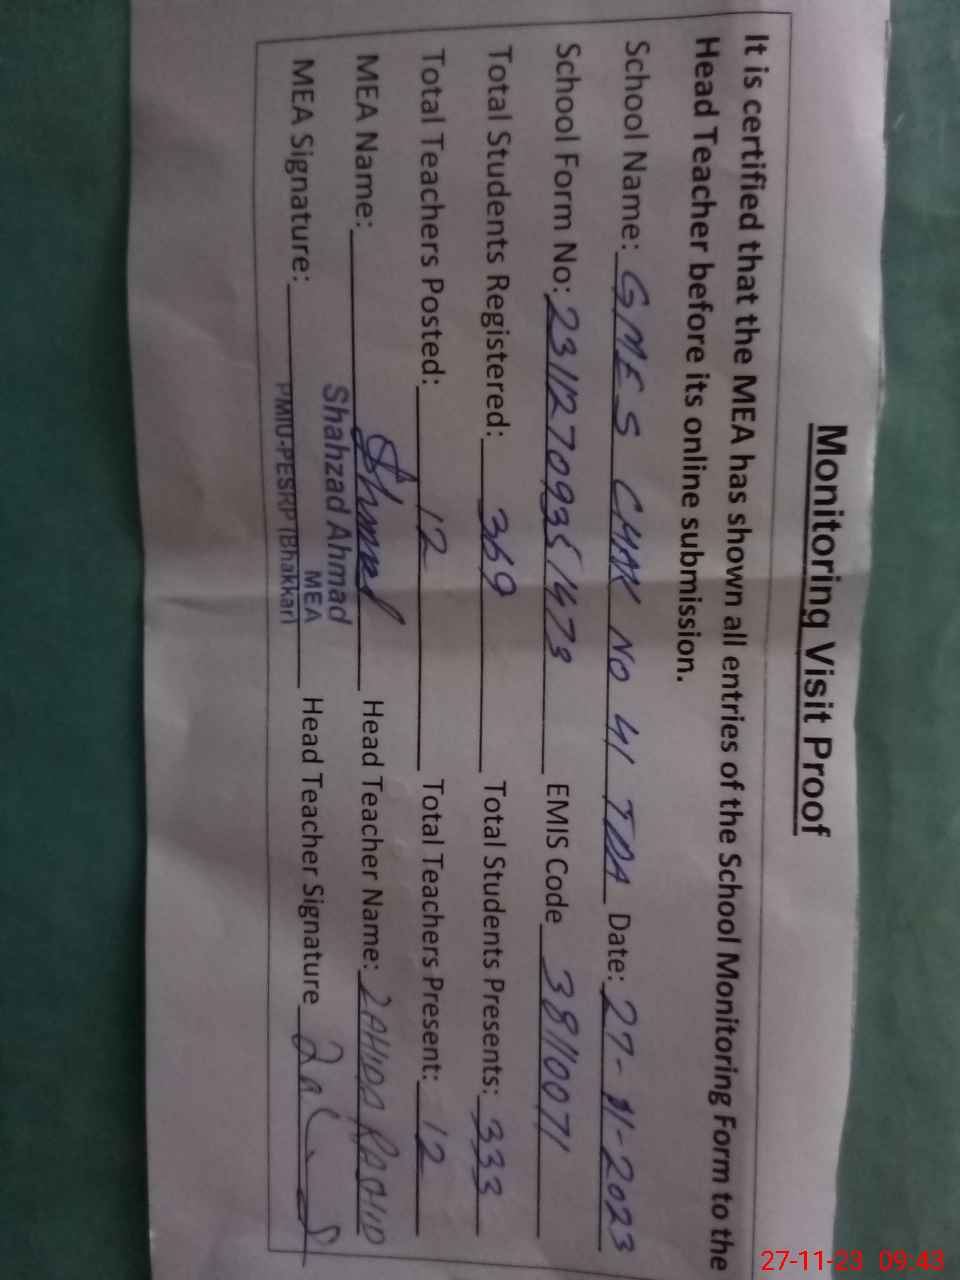 Monitoring Visit Proof
It is certified that the MEA has shown all entries of the School Monitoring Form to the
Head Teacher before its online submission.
School Name: GMES CHAK NO 41 TDA Date: 27-11-2023
School Form No: 23112709351473 EMIS Code 38110071
Total Students Registered: 369 Total Students Presents: 333
Total Teachers Posted: 12 Total Teachers Present: 12
MEA Name: Ahmad Head Teacher Name: ZAHIDA RASHID
Shahzad Ahmad
MEA
MEA Signature: PMIU-PESRP (Bhakkar) Head Teacher Signature
27-11-23 09:43